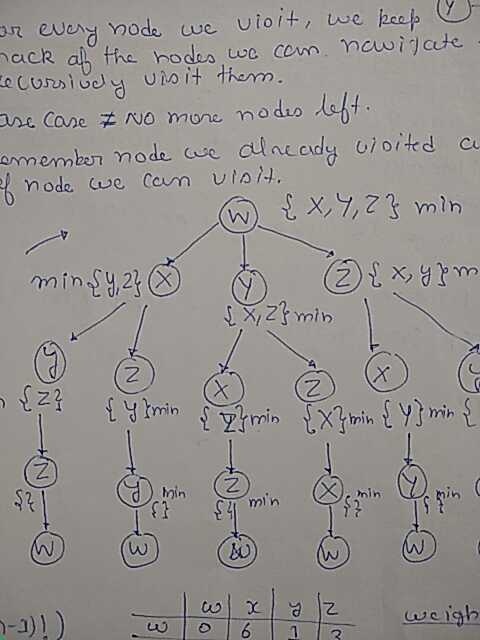 every node we visit, we keep Y
of the nodes we can navigate
recursively visit them.
case ≠ No more nodes left.
remember node we already visited
of node we can visit.
W { X, Y, Z } min
min {Y, Z} X Y Z { X, y} m
{ X, Z } min
y Z X Z X y
{ Z } { y } min { Z } min { X } min { Y } min {
Z y min Z min X min Y min
{} {} {} {} {}
W W W W W
w x y z
w 0 6 1 3